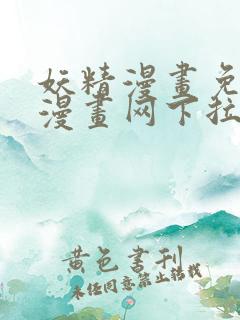 妖精漫畫免
漫畫网下拉
黄色書刊
未经同意禁止轉載